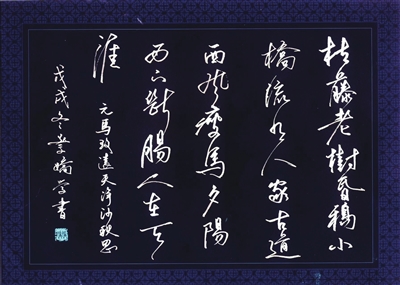 枯藤老樹昏鴉小
橋流水人家古道
西風瘦馬夕陽
西下斷腸人在天
涯
元馬致遠天淨沙秋思
戊戌冬 書